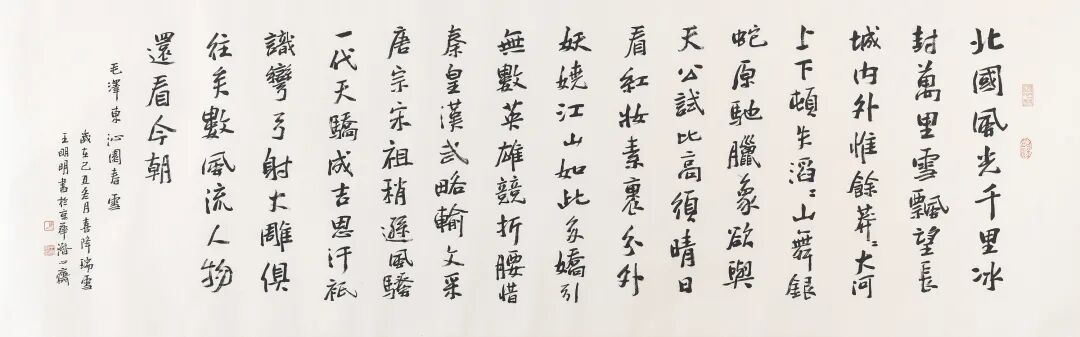 北國風光千里冰
封萬里雪飄望長
城內外惟餘莽〻大河
上下頓失滔〻山舞銀
蛇原馳臘象欲與
天公試比高須晴日
看紅妝素裹分外
妖嬈江山如此多嬌引
無數英雄競折腰惜
秦皇漢武略輸文采
唐宗宋祖稍遜風騷
一代天驕成吉思汗祇
識彎弓射大雕俱
往矣數風流人物
還看今朝
毛澤東沁園春雪
歲在己丑冬月喜降瑞雪
王明明書於京華潛心齋